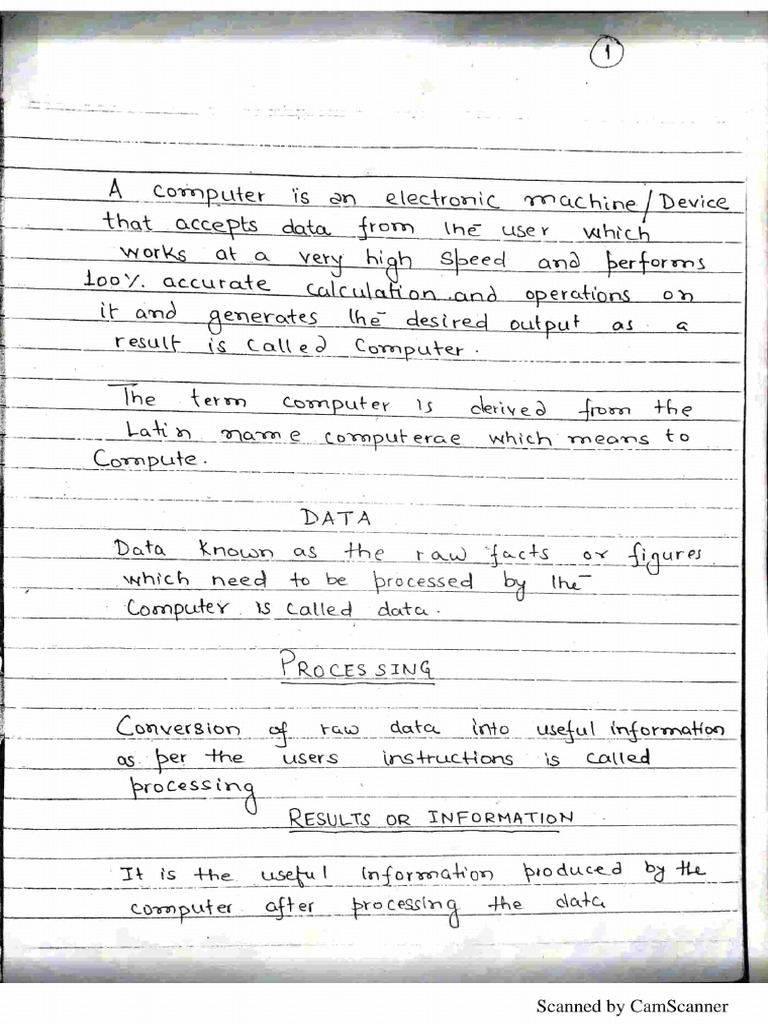 1
A computer is an electronic machine/Device
that accepts data from the user which
works at a very high speed and performs
100% accurate calculation and operations on
it and generates the desired output as a
result is called Computer.
The term computer is derived from the
Latin name computerae which means to
Compute.
DATA
Data Known as the raw facts or figures
which need to be processed by the
Computer is called data.
PROCESSING
Conversion of raw data into useful information
as per the users instructions is called
processing
RESULTS OR INFORMATION
It is the useful information produced by the
computer after processing the data
Scanned by CamScanner